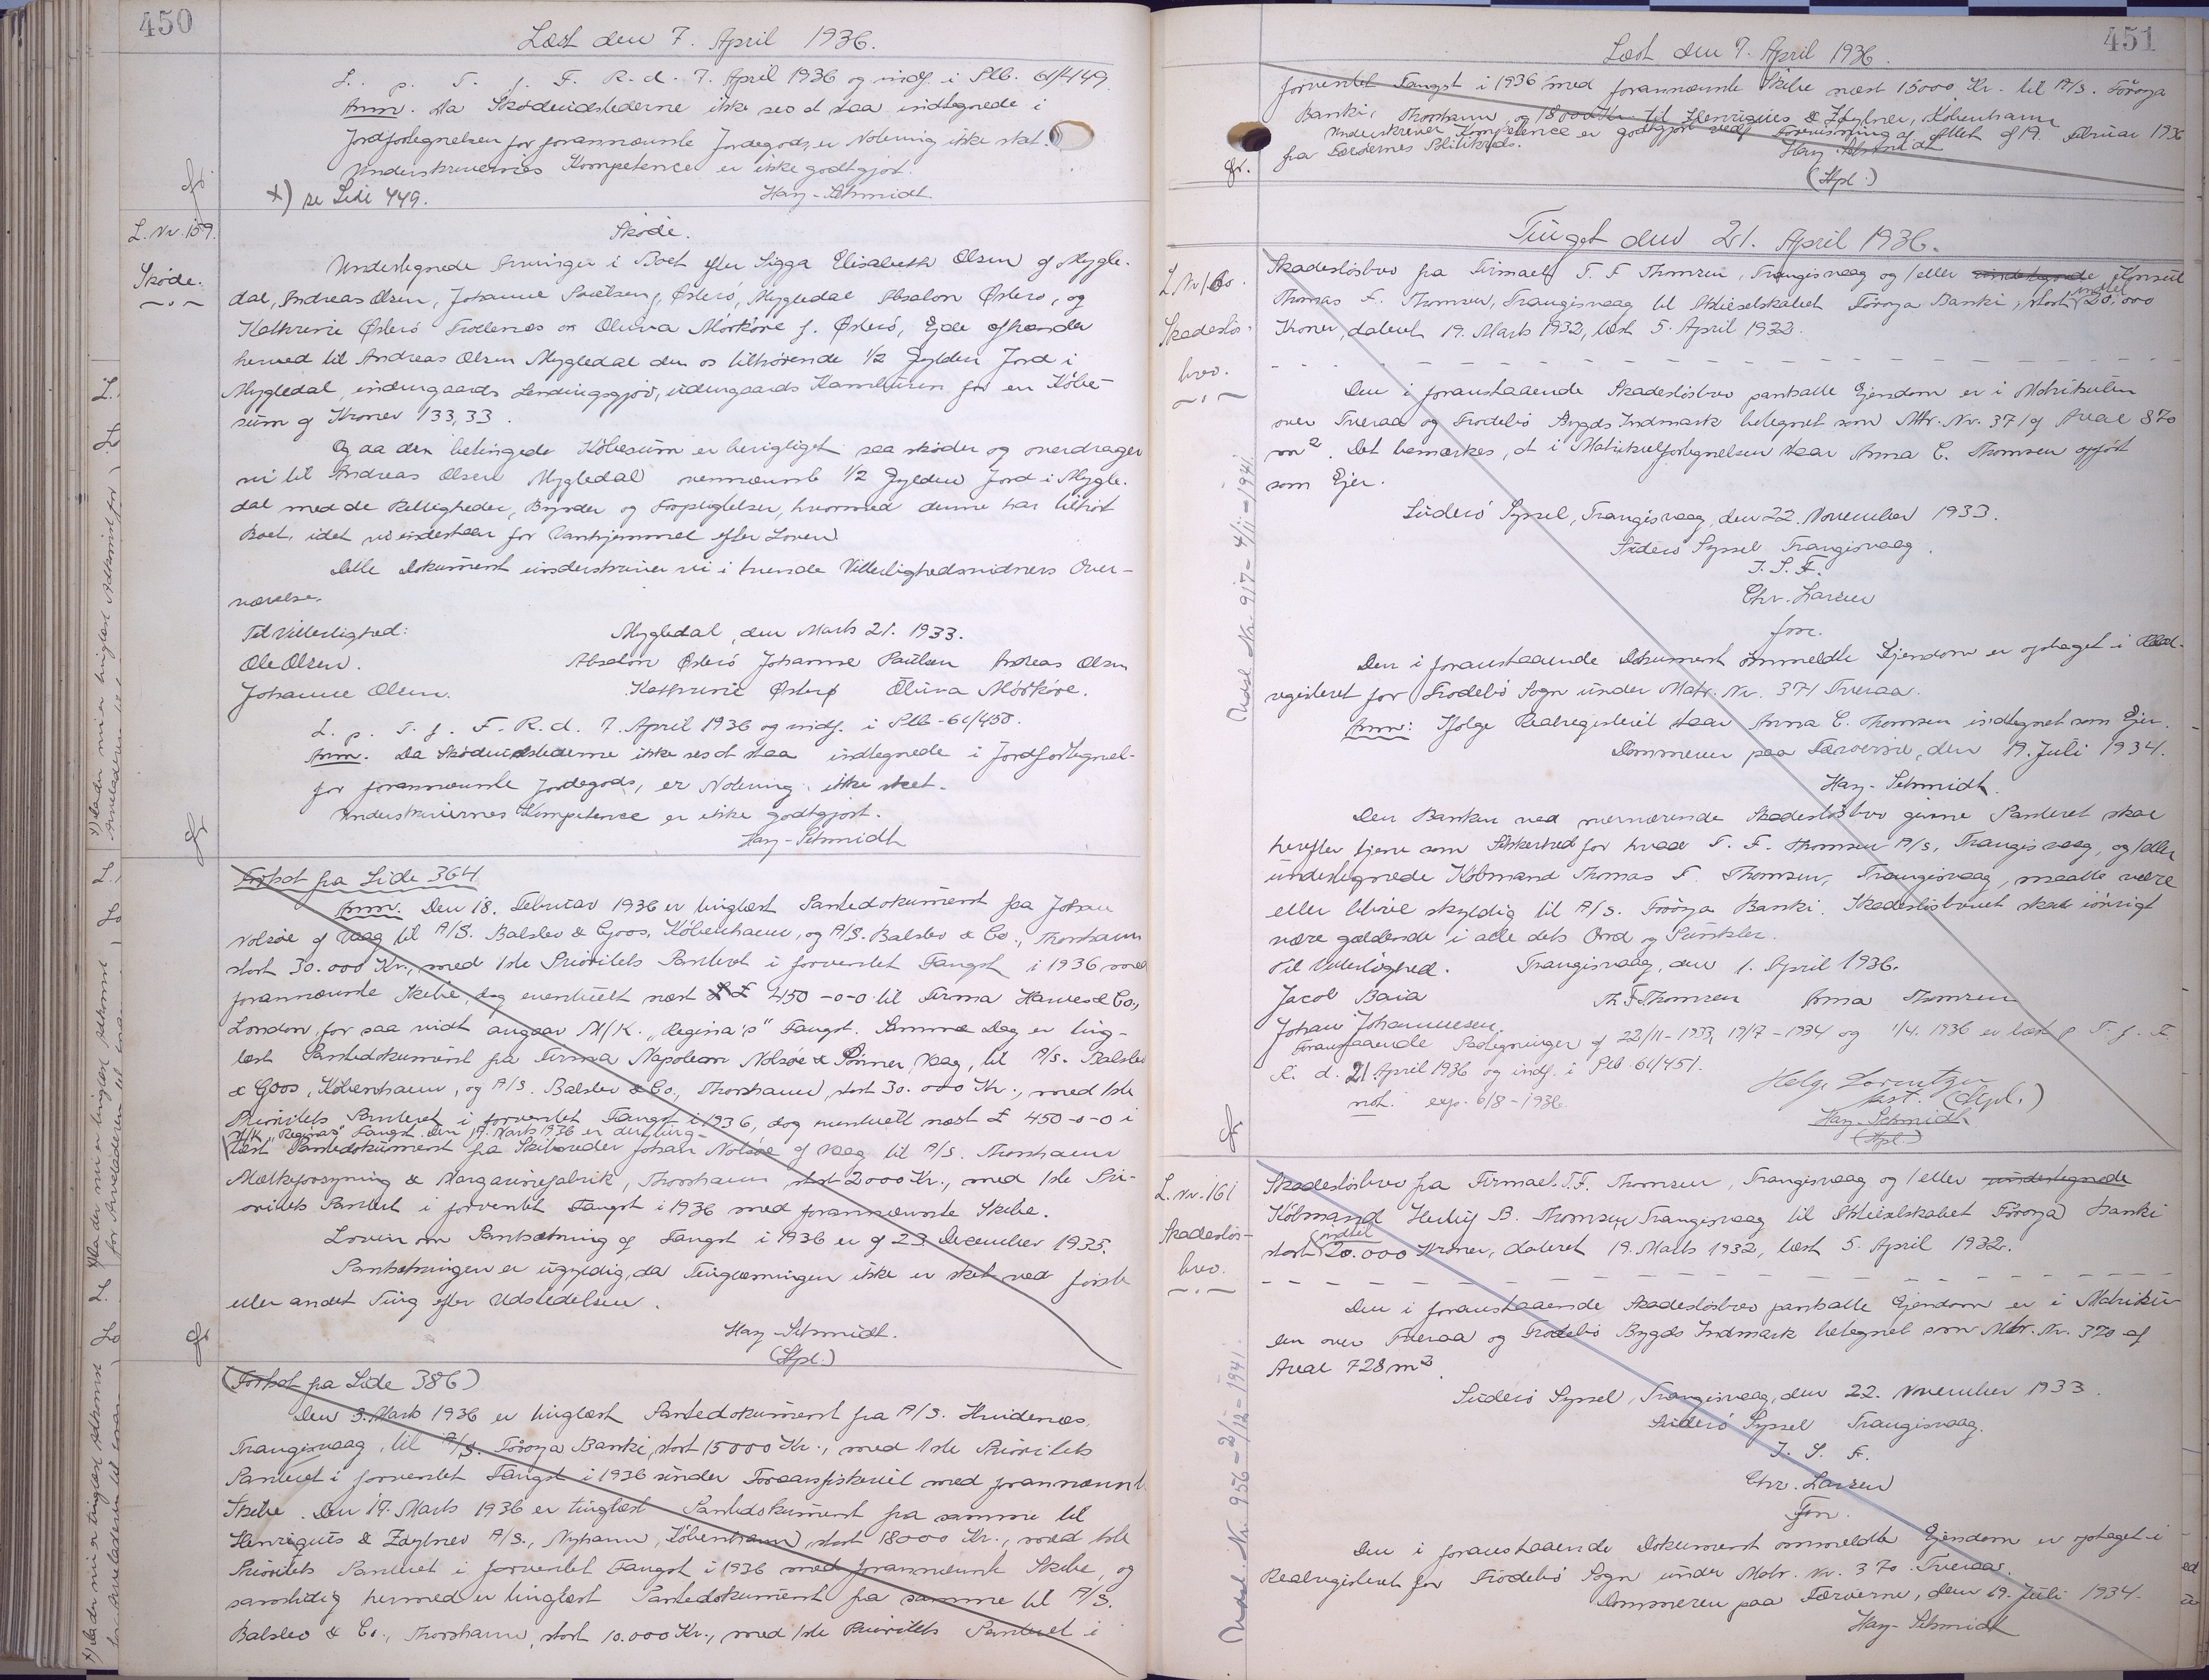 450
Læst den 7. April 1936.
L. p. T. f. F. R. d. 7. April 1936 og indf. i Plb. 61/449.
Anm. Da Skødeudstederne ikke ses at staa indtegnede i
Jordfortegnelsen for forannævnte Jordegods, er Notering ikke sket.
Underskrivernes Kompetence er ikke godtgjort.
x) se Side 449.
Hay-Schmidt
L. Nr. 159.
Skøde.
Skøde.
Undertegnede Arvinger i Boet efter Sigga Elisabeth Olsen af Mygle-
dal, Andreas Olsen, Johanne Poulsen f. Østerö, Mygledal Absalon Østerö, og
Kathrine Østerö Trollenes og Oluva Mörköre f. Østerö, Ejde afhænder
herved til Andreas Olsen Mygledal den os tilhørende 1/2 Gylden Jord i
Mygledal, indengaards Lendingsgjov, udengaards Kambüren for en Købe-
sum af Kroner 133,33.
Og da den betingede Købesum er berigtiget saa skøder og overdrager
vi til Andreas Olsen Mygledal ovennævnte 1/2 Gylden Jord i Mygle-
dal med de Rettigheder, Byrder og Forpligtelser, hvormed denne har tilhørt
Boet, idet vi indestaar for Vanhjemmel efter Loven.
Dette Dokument underskriver vi i tvende Vitterlighedsvidners Over-
værelse.
Til Vitterlighed:
Mygledal, den Marts 21. 1933.
Ole Olsen.
Absalon Østerö Johanne Paulsen Andreas Olsen
Johanne Olsen.
Kathrine Østerø Oluva Mörköre.
L. p. T. f. F. R. d. 7. April 1936 og indf. i Plb. 61/450.
Anm. Da Skødeudstederne ikke ses at staa indtegnede i Jordfortegnel-
for forannævnte Jordegods, er Notering ikke sket.
Underskrivernes Kompetence er ikke godtgjort.
Hay-Schmidt
Fortsat fra Side 364
Anm. Den 18. Februar 1936 er tinglæst Pantedokument fra Johan
Nolsøe af Vaag til A/S. Balslev & Goos, København, og A/S. Balslev & Co., Thorshavn
stort 30.000 Kr., med 1ste Prioritets Panteret i forventet Fangst i 1936 med
forannævnte Skibe, dog eventuelt næst £ 450-0-0 til Firma Hawes & Co.,
London, for saa vidt angaar M/K. "Regina's" Fangst. Samme Dag er ting-
læst Pantedokument fra Firma Napoleon Nolsøe & Sønner, Vaag, til A/S. Balslev
& Goos, København, og A/S. Balslev & Co., Thorshavn, stort 30.000 Kr., med 1ste
Prioritets Panteret i forventet Fangst i 1936, dog eventuelt næst £ 450-0-0 i
M/K. "Reginas" Fangst. Den 17. Marts 1936 er der ting-
læst Pantedokument fra Skibsreder Johan Nolsøe af Vaag til A/S. Thorshavn
Mælkeforsyning & Margarinefabrik, Thorshavn stort 2000 Kr., med 1ste Pri-
oritets Panteret i forventet Fangst i 1936 med forannævnte Skibe.
Loven om Pantsætning af Fangst i 1936 er af 23. December 1935.
Pantsætningen er ugyldig, da Tinglæsningen ikke er sket ved første
eller andet Ting efter Udstedelsen.
Hay-Schmidt.
(Stpl.)
(Fortsat fra Side 386)
Den 3. Marts 1936 er tinglæst Pantedokument fra A/S. Hvidenæs,
Trangisvaag, til A/S. Föroya Banki, stort 15000 Kr., med 1ste Prioritets
Panteret i forventet Fangst i 1936 under Foraarsfiskeriet med forannævnte
Skibe. Den 17. Marts 1936 er tinglæst Pantedokument fra samme til
Henriques & Zøylner A/S., Nyhavn, København, stort 18000 Kr., med 1ste
Prioritets Panteret i forventet Fangst i 1936 med forannævnte Skibe, og
samtidig hermed er tinglæst Pantedokument fra samme til A/S.
Balslev & Co., Thorshavn, stort 10.000 Kr., med 1ste Prioritets Panteret i
451
Læst den 7. April 1936.
forventet Fangst i 1936 med forannævnte Skibe næst 15000 Kr. til A/S. Föroya
Banki, Thorshavn, og 18000 Kr. til Henriques & Zøylner, København
Underskriver Kompetence er godtgjort ved Forevisning af Attest af 19. Februar 1936
fra Færøernes Politikreds.
Hay-Schmidt
(Stpl.)
Tinget den 21. April 1936.
L. Nr. 160.
Skadesløs-
brev.
Skadesløsbrev fra Firmaet T. F. Thomsen, Trangisvaag og/eller undertegnede Konsul
Thomas F. Thomsen, Trangisvaag til Aktieselskabet Föroya Banki, stort indtil 20.000
Kroner, dateret 19. Marts 1932, læst 5. April 1932.
Den i foranstaaende Skadesløsbrev pantsatte Ejendom er i Matrikulen
over Tveraa og Frodebö Bygds Indmark betegnet som Mtr. Nr. 371 af Areal 870
m². Det bemærkes, at i Matrikulfortegnelsen staar Anna C. Thomsen opført
som Ejer.
Suderö Syssel, Trangisvaag, den 22. November 1933.
Suderö Syssel Trangisvaag.
I. S. F.
Chr. Larsen
fm.
Den i foranstaaende Dokument ommeldte Ejendom er optaget i Real-
registeret for Frodebö Sogn under Matr. Nr. 371 Tveraa.
Anm: Ifølge Realregisteret staar Anna C. Thomsen indtegnet som Ejer.
Dommeren paa Færøerne, den 19. Juli 1934.
Hay-Schmidt.
Den Banken ved nærværende Skadesløsbrev givne Panteret skal
herefter tjene som Sikkerhed for hvad T. F. Thomsen A/S, Trangisvaag, og/eller
undertegnede Købmand Thomas F. Thomsen, Trangisvaag, maatte være
eller blive skyldig til A/S. Föroya Banki. Skadesløsbrevet skal iøvrigt
være gældende i alle dets Ord og Punkter.
Til Vitterlighed.
Trangisvaag, den 1. April 1936.
Jacob Baia
Th F Thomsen Anna Thomsen
Johan Johannesen.
Foranstaaende Paategninger af 22/11-1933, 19/7-1934 og 1/4. 1936 er læst p T. f. F.
R. d. 21. April 1936 og indf. i Plb 61/451.
not. exp. 6/8-1936.
Hay-Schmidt
(Stpl.)
Udsl. Nr. 917-4/11-1941.
L. Nr. 161
Skadesløs-
brev.
Skadesløsbrev fra Firmaet T.F. Thomsen, Trangisvaag og/eller undertegnede
Købmand Herluf B. Thomsen Trangisvaag til Aktieselskabet Föroya Banki
stort indtil 20.000 Kroner, dateret 19. Marts 1932, læst 5. April 1932.
Den i foranstaaende Skadesløsbrev pantsatte Ejendom er i Matriku-
len over Tveraa og Frodebö Bygds Indmark betegnet som Mtr. Nr. 370 af
Areal 728 m².
Suderö Syssel, Trangisvaag, den 22. November 1933.
Suderö Syssel Trangisvaag.
I. S. F.
Chr. Larsen
fm.
Den i foranstaaende Dokument ommeldte Ejendom er optaget i
Realregisteret for Frodebö Sogn under Matr. Nr. 370 Tveraa.
Dommeren paa Færøerne, den 19. Juli 1934.
Hay-Schmidt
Udsl. Nr. 956-2/12-1941.